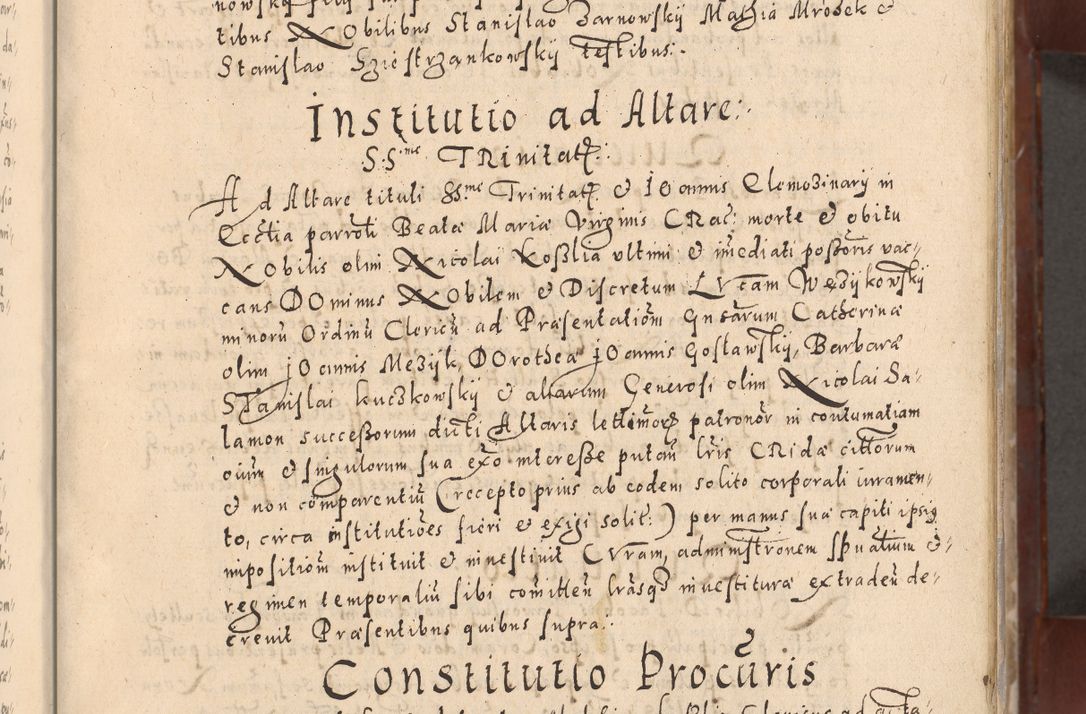 tibus Nobilibus Stanislao Zarnowskÿ Mathia Mrozek &
Stanislao Szčestrzankowskÿ testibus.
Institutio ad Altare:
S:S.me TRinitat:
Ad Altare tituli SS.me Trinitat: & IOannis Elemozinarÿ in
Ecctia parroti Beatæ Mariæ Virginis CRac: morte & obitu
NObilis olim Nicolai Koßlia vltimi & imediati poßoris vac-
cans DOminus NObilem & Discretum LVcam Wezÿkowskÿ
minorū Ordinū Clericū ad Præsentationem Gnsarum Catherinæ
olim iOannis Mezÿk, DOrotheæ iOannis Gosławskÿ, Barbaræ
STanislai kuczkowskÿ & aliarum Generosi olim Nicolai Sa-
lamon succeßorum dicti Altaris lettimorum patronor in contumatiam
oium & singulorum sua exo intereße putan lris CRidæ cittorum
& non comparentiū (recepto prius ab eodem solito corporali iuramen-
to, circa institutiões fieri & exigi solit:) per manus suæ capiti ipsius
impositiom instituit & inuestiuit CVram, administronem spualium &
regimen temporaliū sibi comitten lrasq inuestituræ extraden de-
creuit Præsentibus quibus supra.
Constitutio Procūris